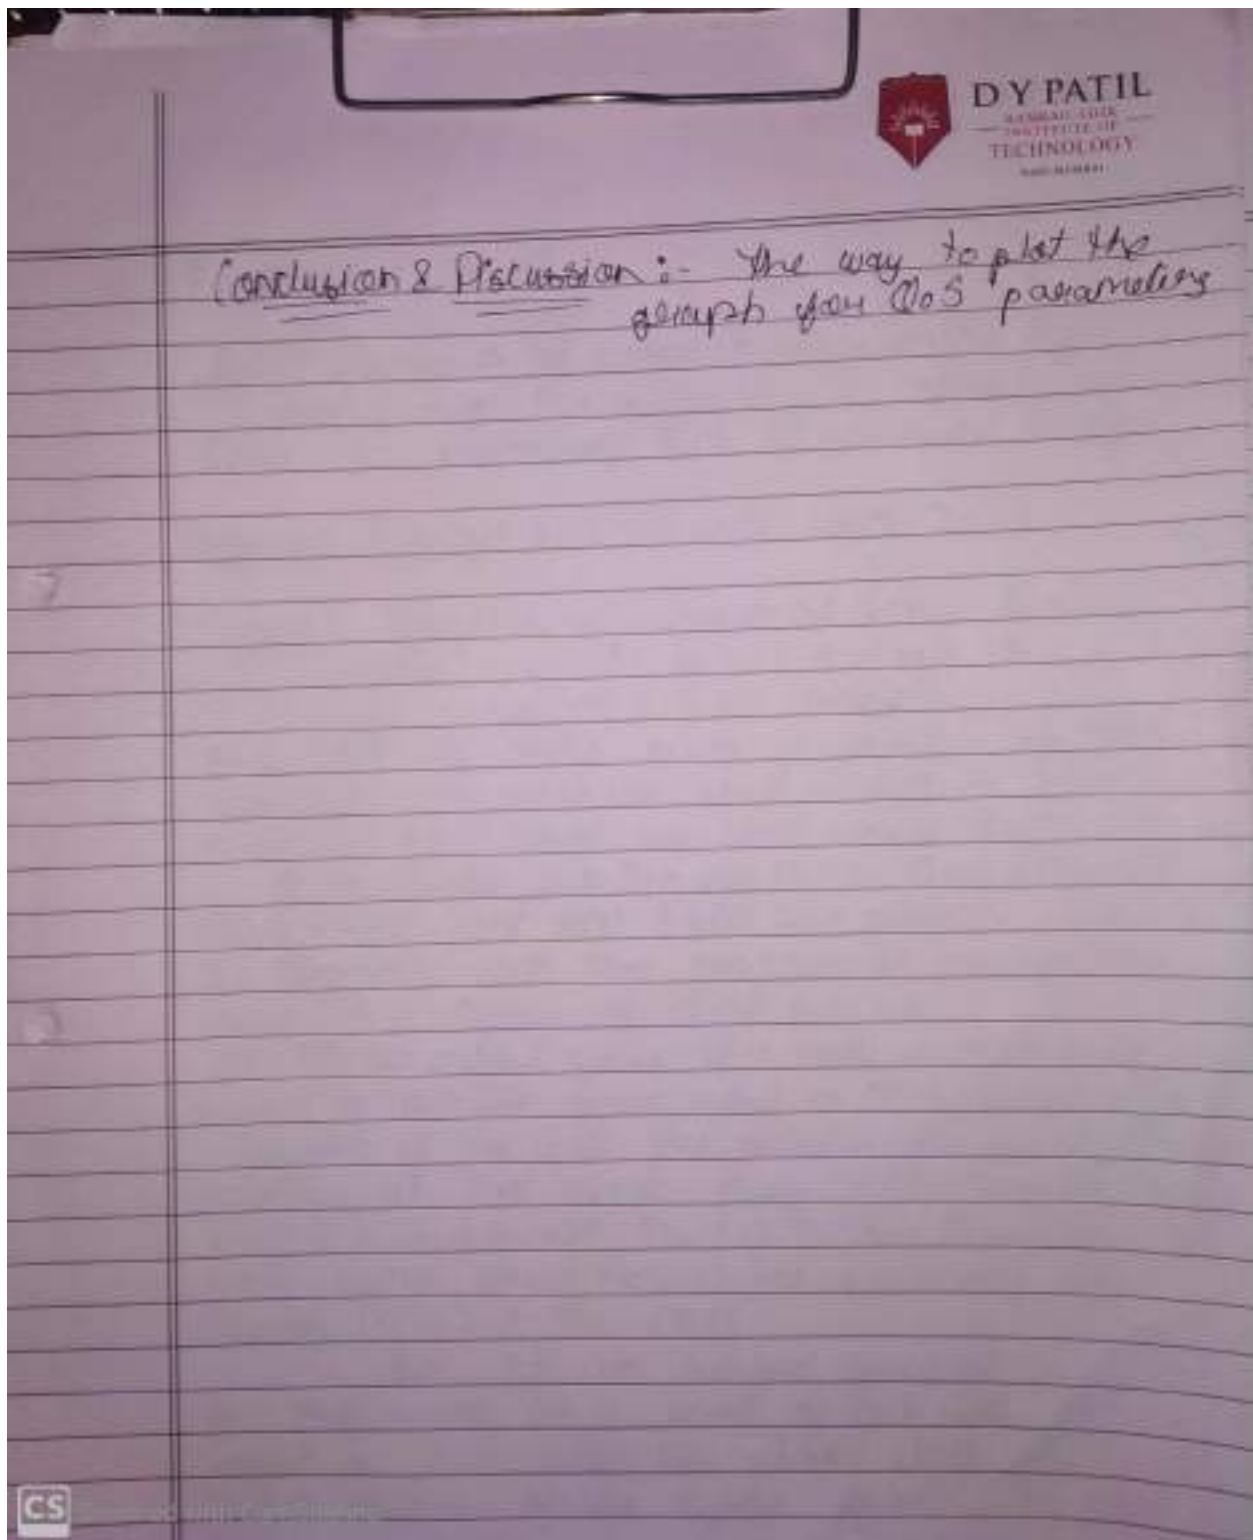 D Y PATIL
RAMRAO ADIK
INSTITUTE OF
TECHNOLOGY
NAVI MUMBAI
Conclusion & Discussion :- The way to plot the
graph for QoS parameters
CS
Scanned with CamScanner